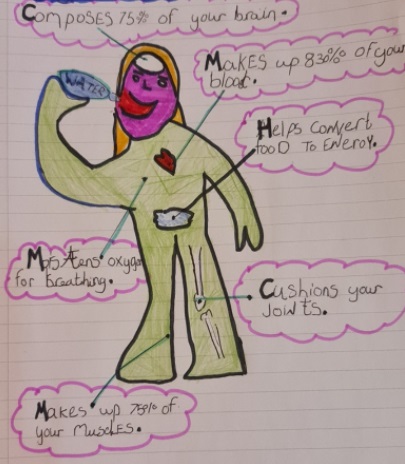 Composes 75% of your brain.
Makes up 830% of your
blood.
WATER
Helps convert
fooD To Energy.
for breathing.
Cushions your
Joints.
Makes up 75% of
your Muscles.